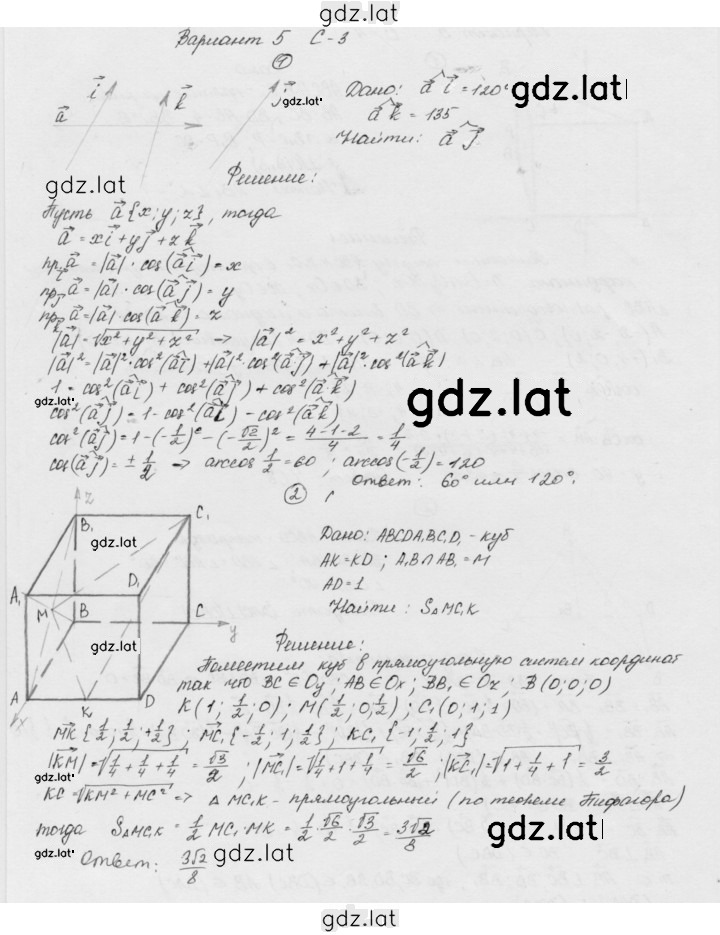 gdz.lat
Вариант 5 С-3
①
a⃗ i⃗ k⃗ j⃗ gdz.lat Дано: a⃗^i⃗ = 120° gdz.lat
a⃗^k⃗ = 135
Найти: a⃗^j⃗
gdz.lat Решение:
Пусть a⃗ {x; y; z}, тогда
a⃗ = xi⃗ + yj⃗ + zk⃗
пр_i a⃗ = |a⃗| · cos(a⃗^i⃗) = x
пр_j a⃗ = |a⃗| · cos(a⃗^j⃗) = y
пр_k a⃗ = |a⃗| · cos(a⃗^k⃗) = z
|a⃗| = √x²+y²+z² → |a⃗|² = x²+y²+z²
|a⃗|² = |a⃗|²·cos²(a⃗^i⃗) + |a⃗|²·cos²(a⃗^j⃗) + |a⃗|²·cos²(a⃗^k⃗)
1 = cos²(a⃗^i⃗) + cos²(a⃗^j⃗) + cos²(a⃗^k⃗)
gdz.lat
cos²(a⃗^j⃗) = 1 - cos²(a⃗^i⃗) - cos²(a⃗^k⃗) gdz.lat
cos²(a⃗^j⃗) = 1-(-1/2)² -(-√2/2)² = (4-1-2)/4 = 1/4
cos(a⃗^j⃗) = ± 1/2 → arccos 1/2 = 60 ; arccos(-1/2) = 120
Ответ: 60° или 120°.
②
z
B₁ C₁ Дано: ABCDA₁B₁C₁D₁ - куб
gdz.lat AK = KD ; A₁B∩AB₁ = M
A₁ D₁ AD = 1
M B C Найти: S△MC₁K
y
gdz.lat Решение:
Поместим куб в прямоугольную систем координат
A K D x так что BC∈Oy ; AB∈Ox ; BB₁∈Oz ; B(0;0;0)
K(1; 1/2; 0) ; M(1/2; 0; 1/2) ; C₁(0; 1; 1)
MK {1/2; 1/2; +1/2} ; MC₁ {-1/2; 1; 1/2} ; KC₁ {-1; 1/2; 1}
|KM| = √1/4+1/4+1/4 = √3/2 ; |MC₁| = √1/4+1+1/4 = √6/2 ; |KC₁| = √1+1/4+1 = 3/2
gdz.lat
KC = √KM²+MC² => △MC₁K - прямоугольный (по теореме Пифагора)
тогда S△MC₁K = 1/2 MC₁·MK = 1/2·√6/2·√3/2 = 3√2/8 gdz.lat
gdz.lat
Ответ: 3√2/8 gdz.lat
gdz.lat